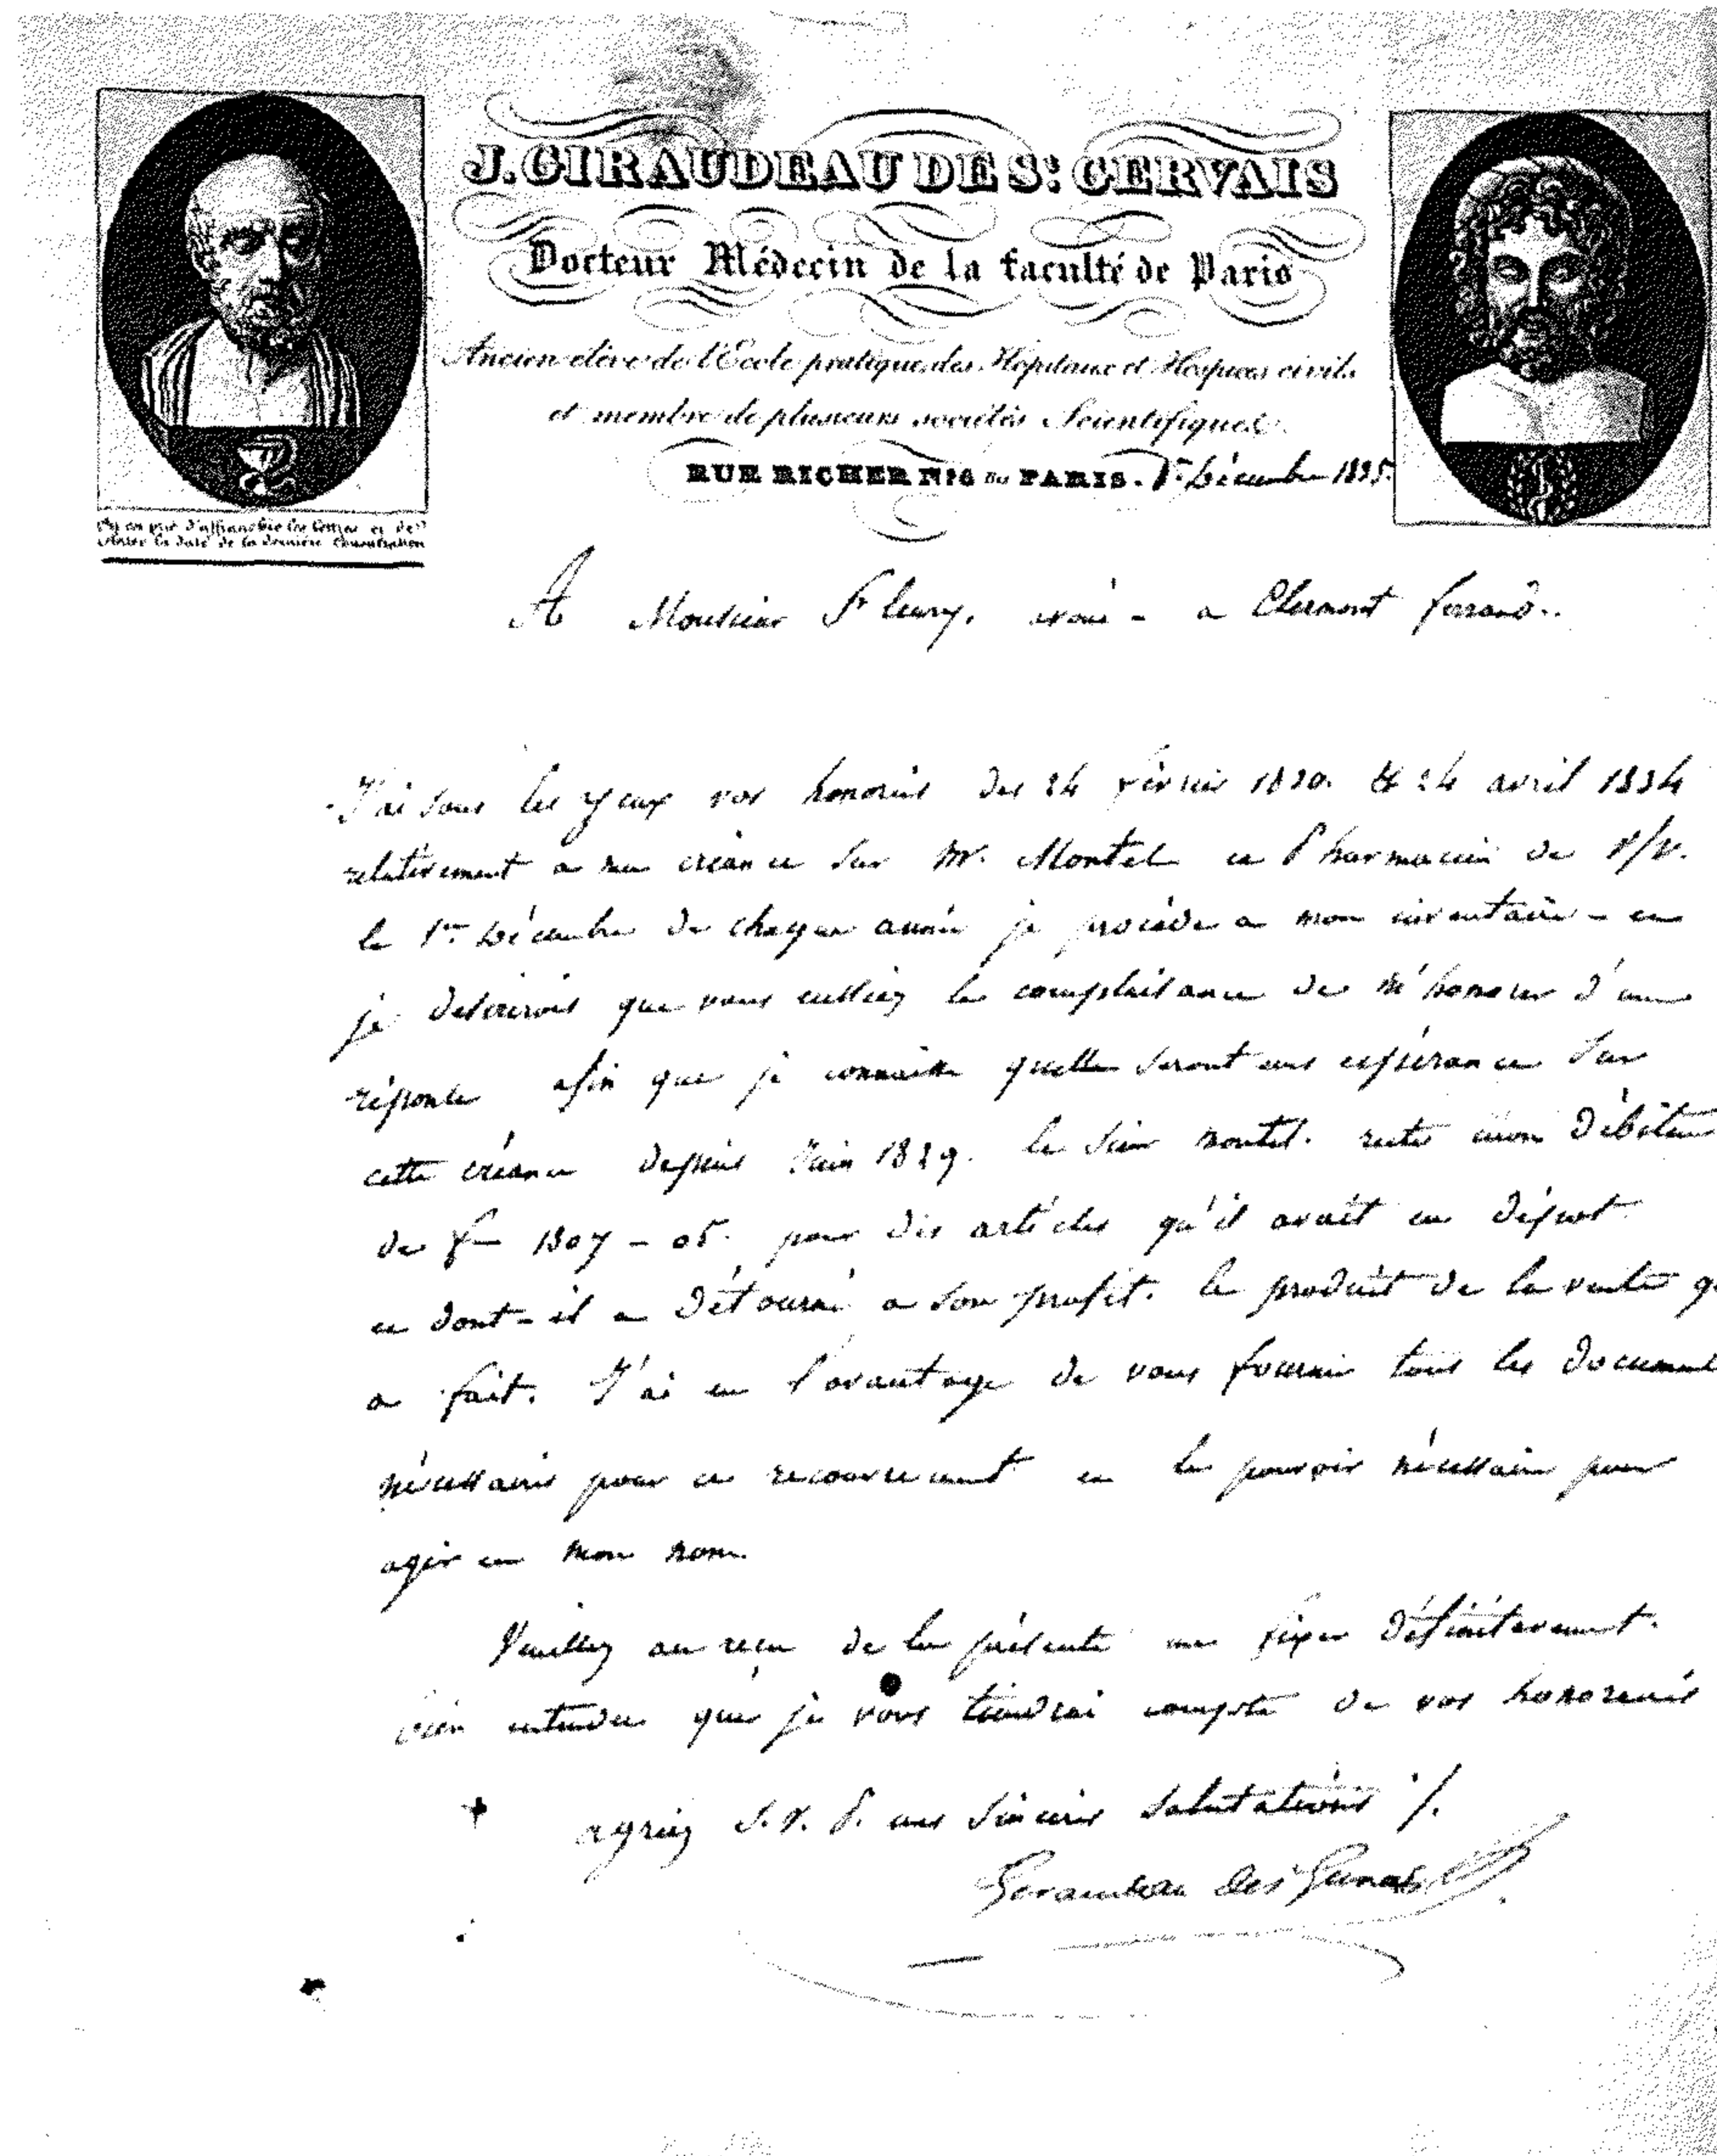 J. GIRAUDEAU DE St. GERVAIS
Docteur Médecin de la faculté de Paris
Ancien élève de l'École pratique, des Hôpitaux et Hospices civils
et membre de plusieurs sociétés Scientifiques.
RUE RICHER No. 6 PARIS. 1er Décembre 1835.
On est prié d'affranchir les lettres et de
relater la date de la dernière Consultation
A Monsieur Fleury, avoué - a Clermont ferrand..
J'ai sous les yeux vos honorées des 24 février 1830. & 24 avril 1834
relativement a ma créance sur Mr. Montel ex Pharmacien de V/V.
le 1er Décembre de chaque année je procède a mon inventaire - et
je désirerois que vous eussiez la complaisance de m'honorer d'une
réponse afin que je connaisse quelle seront mes espérance sur
cette créance depuis Juin 1829. le sieur montel. reste mon Débiteur
de f 1307 - 05. pour des articles qu'il avait en dépost
et dont - il a détourné a son profit. le produit de la vente
a fait. J'ai eu l'avantage de vous fournir tous les document
nécessaires pour ce recouvrement et le pouvoir nécessaire pour
agir en mon nom.
Veuillez au reçu de la présente me fixer définitivement.
bien entendu que je vous tiendrai compte de vos honoraires
agréez S. V. P. mes sincères salutations ./.
Giraudeau de St Gervais